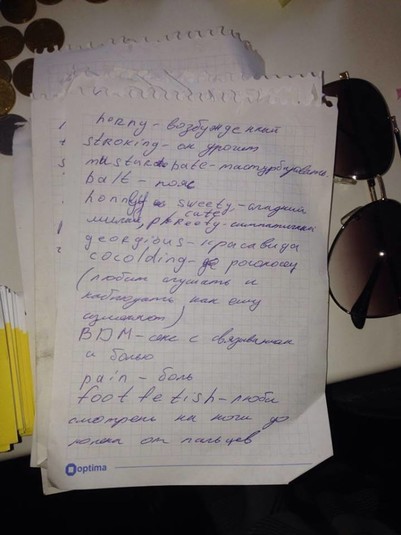 horny - возбужденный
stroking - он дрочит
mustur bate - мастурбировать
balt - пояс
honny sweety - сладкий
милый, cute, preety - симпатичная
georgious - красавица
cocolding - рогоносец
(любит слушать и
наблюдать как ему
изменяют)
BDM - секс с связиванием
и болью
pain - боль
foot fetish - люби
смотреть на ноги до
колена от пальцев
optima